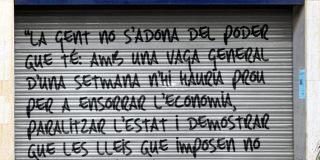 "LA GENT NO S'ADONA DEL PODER
QUE TÉ: AMB UNA VAGA GENERAL
D'UNA SETMANA N'HI HAURIA PROU
PER A ENSORRAR L'ECONOMIA,
PARALITZAR L'ESTAT I DEMOSTRAR
QUE LES LLEIS QUE IMPOSEN NO